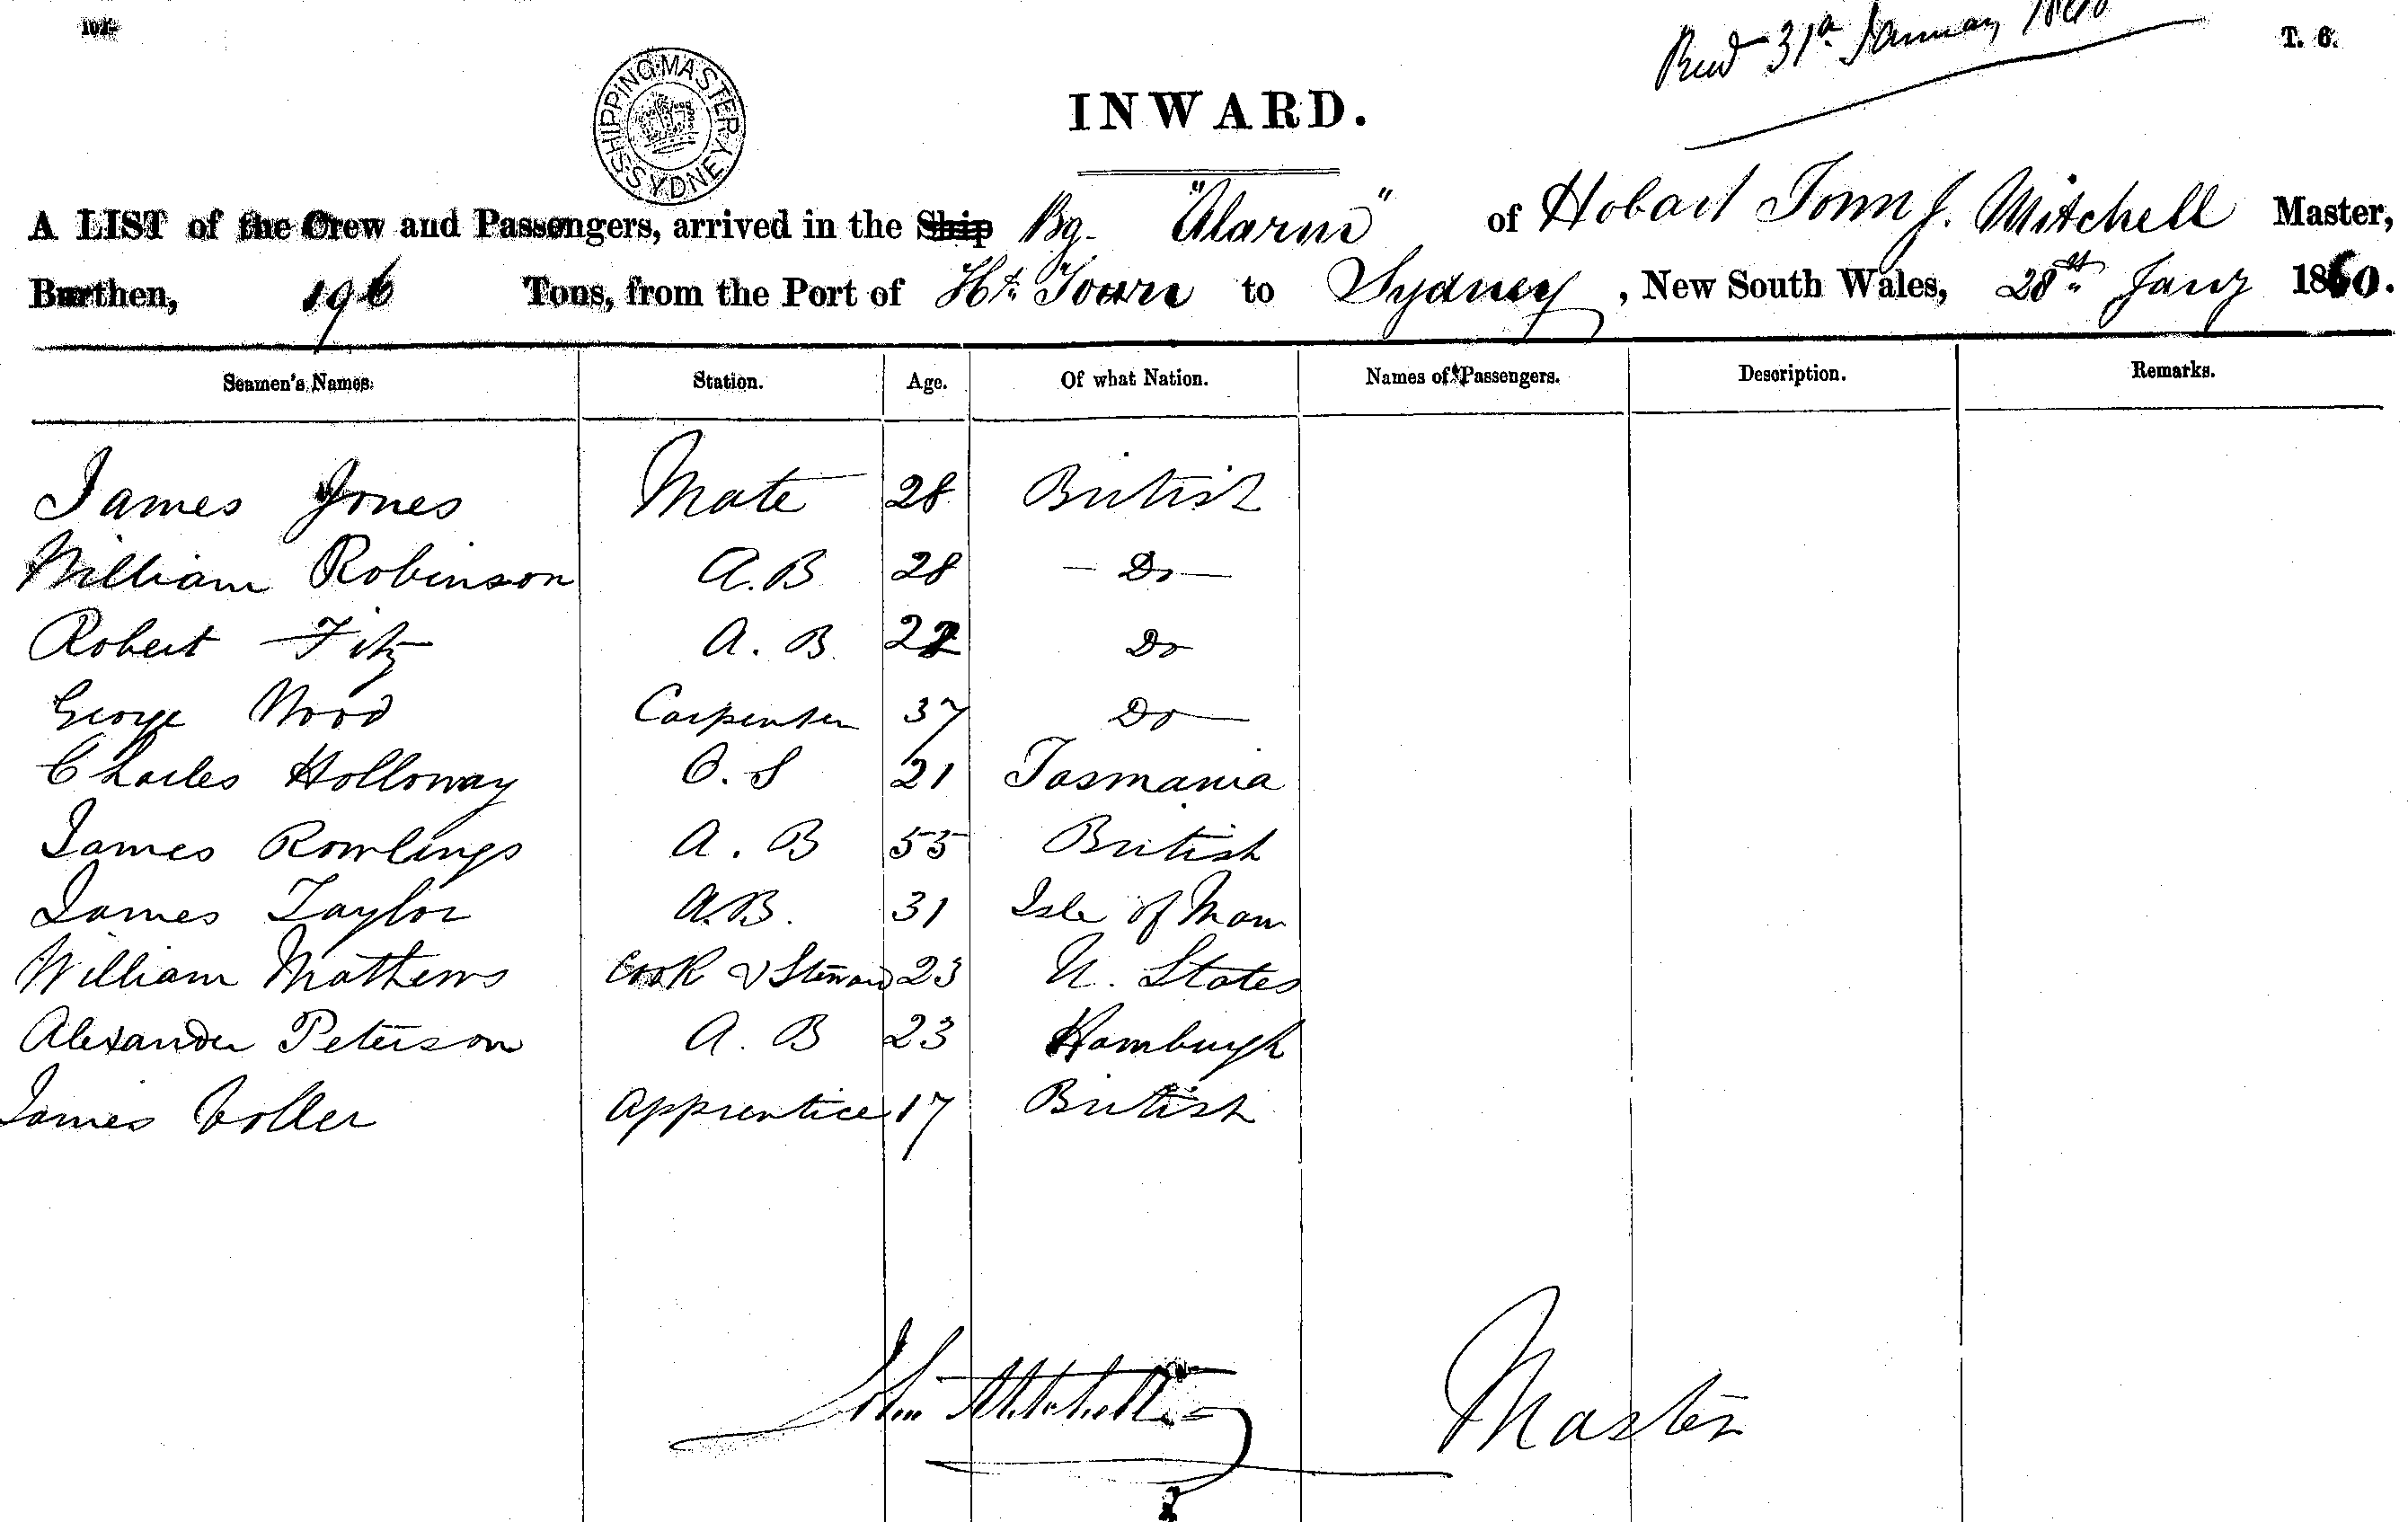 Recd 31st January 1860
T. 6.
SHIPPING MASTER SYDNEY
INWARD.
A LIST of the Crew and Passengers, arrived in the Ship Bg. "Alarm" of Hobart Town J. Mitchell Master,
Burthen, 196 Tons, from the Port of Ht. Town to Sydney, New South Wales, 28th Jany 1860.
Seamen's Names. Station. Age. Of what Nation. Names of Passengers. Description. Remarks.
James Jones Mate 28 British
William Robinson A.B 28 - Do -
Robert Fitz A. B 22 Do
George Wood Carpenter 37 Do
Charles Holloway O. S 21 Tasmania
James Rowlings A. B 55 British
James Taylor A.B. 31 Isle of Man
William Mathews Cook & Steward 23 U. States
Alexander Peterson A. B 23 Hamburgh
James Voller Apprentice 17 British
John Mitchell Master